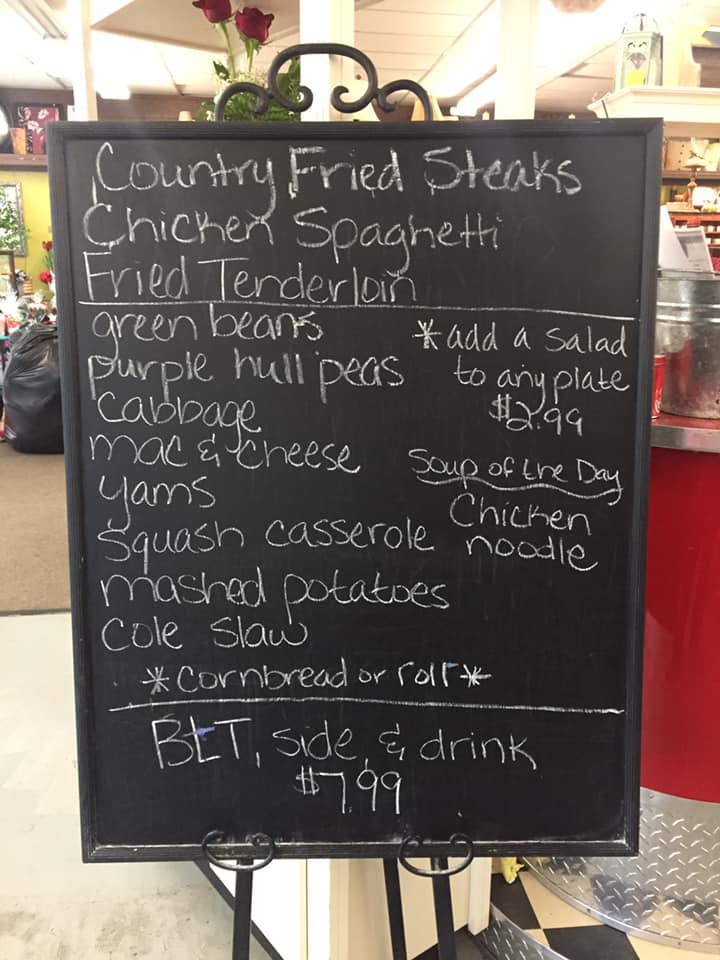 Country Fried Steaks
Chicken Spaghetti
Fried Tenderloin
green beans
purple hull peas
Cabbage
mac & cheese
yams
Squash casserole
mashed potatoes
Cole Slaw
*add a salad
to any plate
$2.99
Soup of the Day
Chicken
noodle
*Cornbread or roll*
BLT, side & drink
$7.99